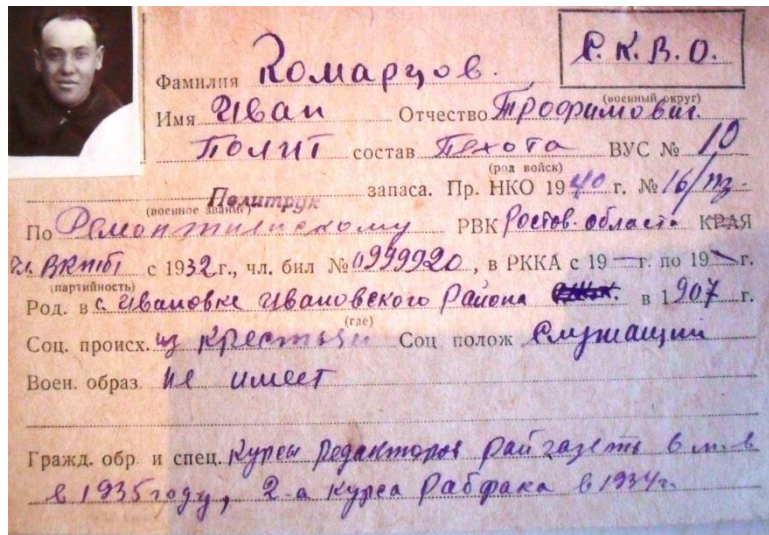 С.К.В.О.
(военный округ)
Фамилия Комарцов.
Имя Иван Отчество Трофимович.
Полит состав Пехота ВУС № 10
(род войск)
Политрук запаса. Пр. НКО 1940 г. № 16/пз.
(военное звание)
По Ремонтненскому РВК Ростов. области КРАЯ
чл. ВКП(б) с 1932 г., чл. бил № 0999920, в РККА с 19— г. по 19— г.
(партийность)
Род. в с. Ивановке Ивановского Района в 1907 г.
(где)
Соц. происх. из крестьян Соц полож Служащий
Воен. образ. не имеет
Гражд. обр. и спец. Курсы Редакторов райгазеты 6 м-в
в 1935 году, 2-а курса Рабфака в 1934 г.